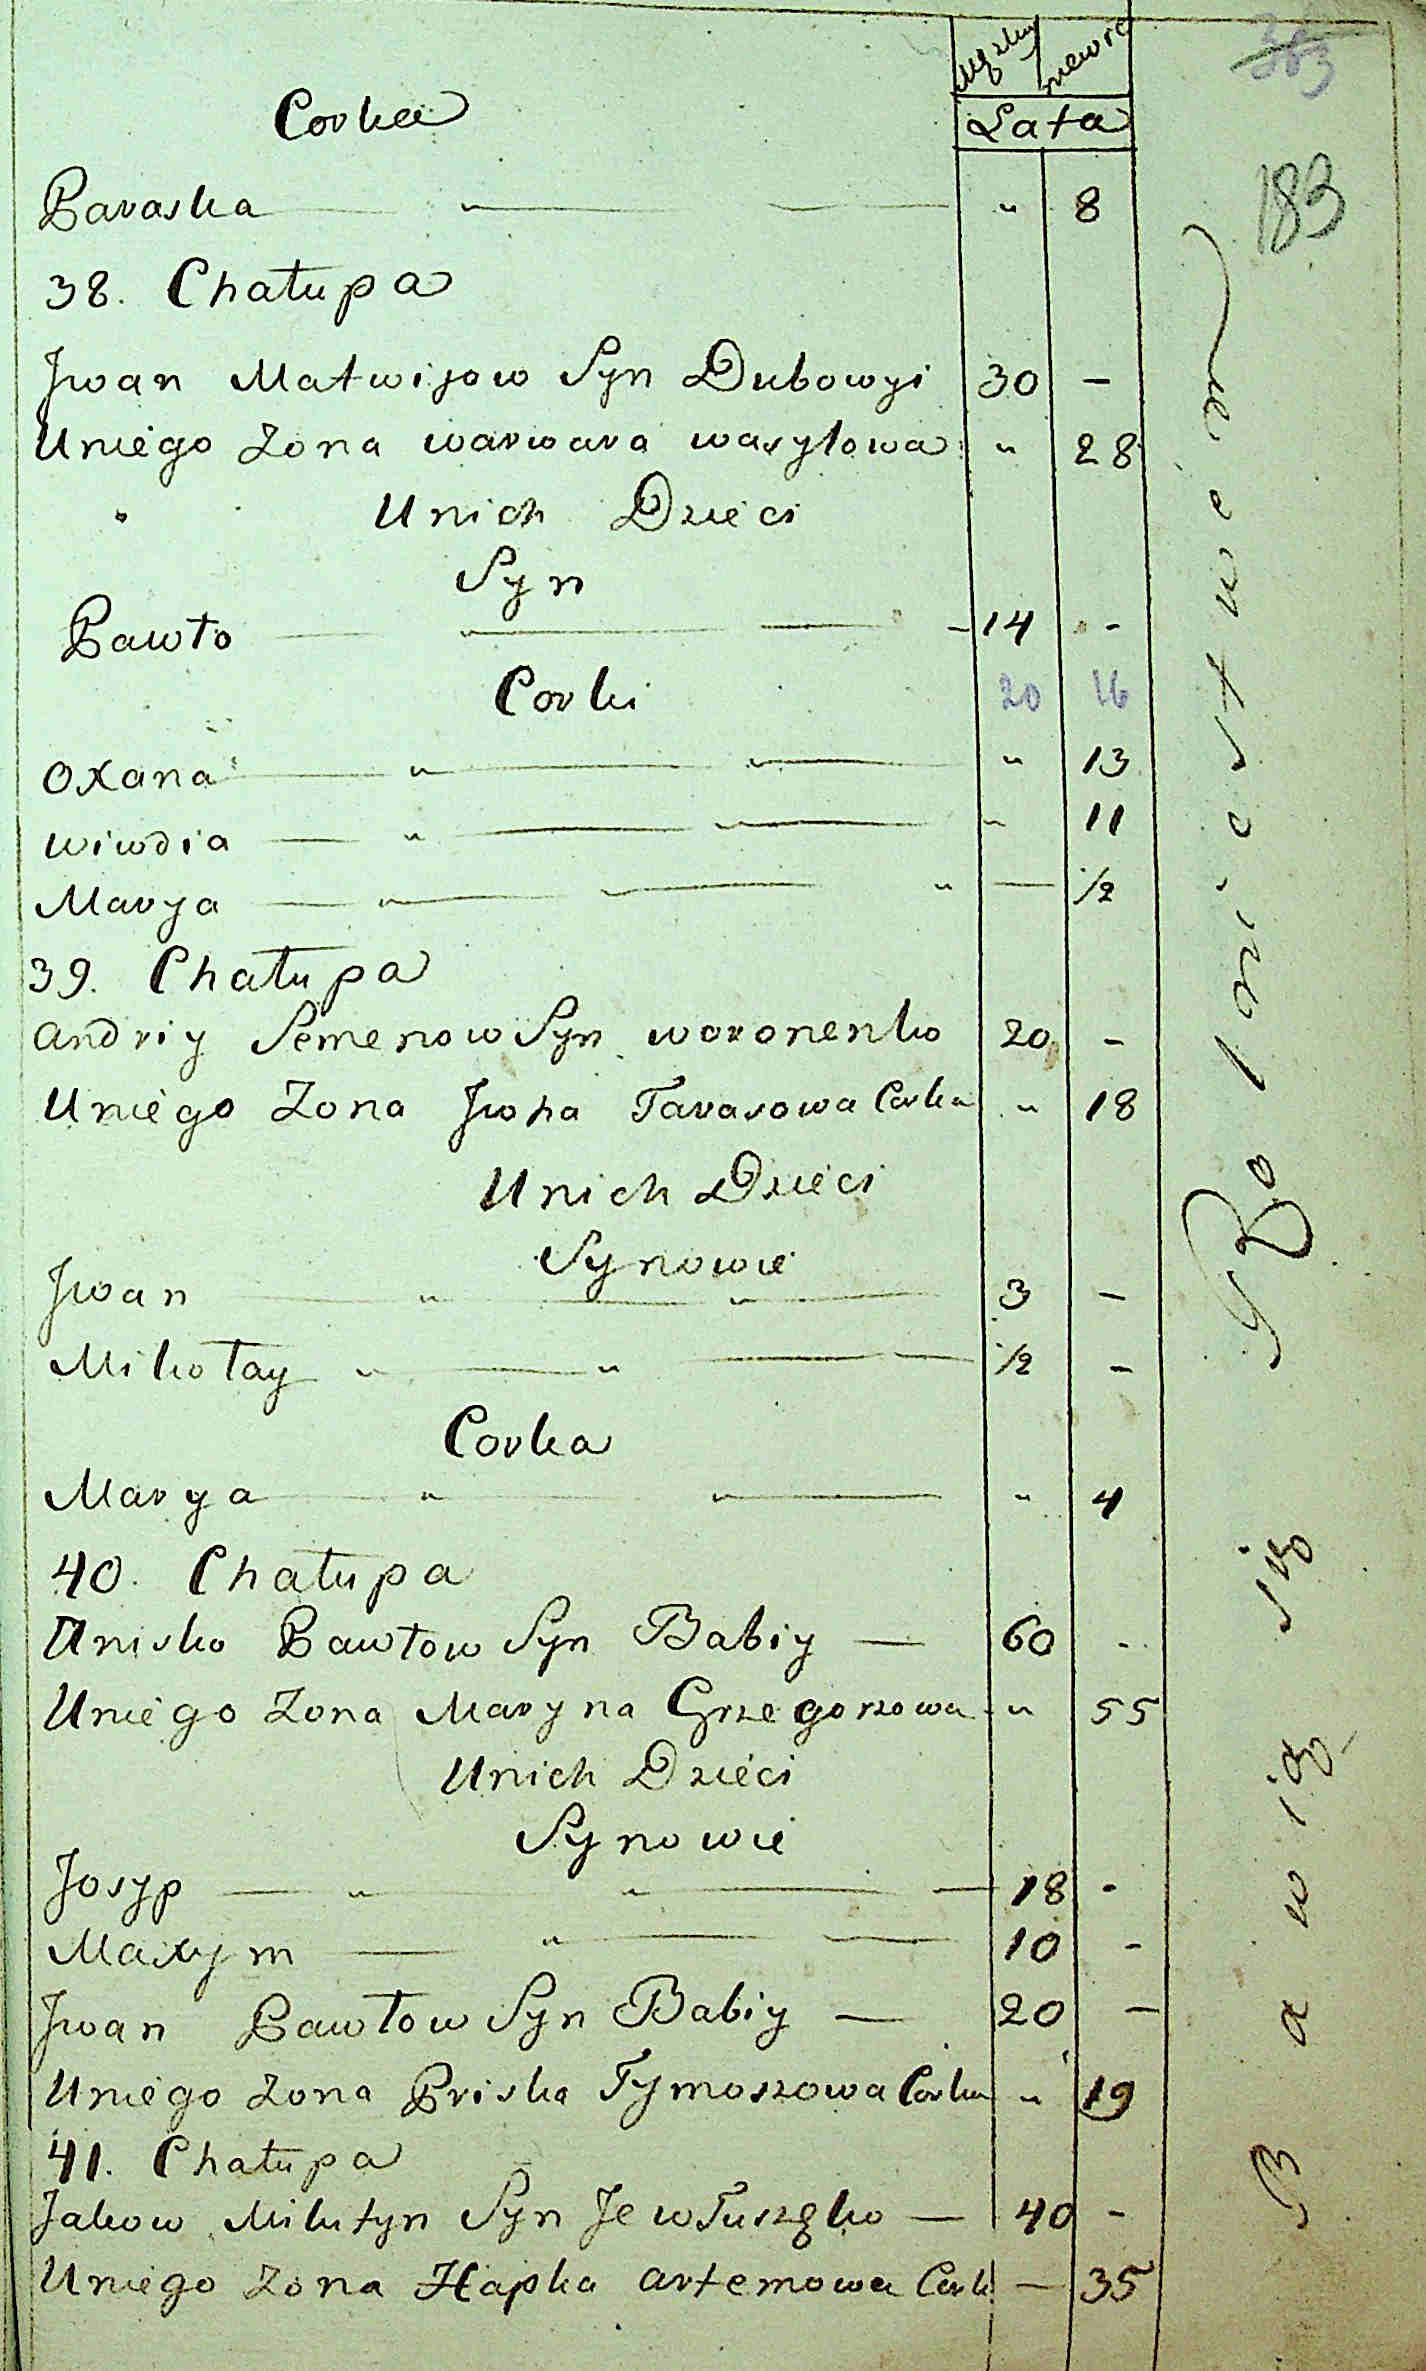 Męzkie niewie
Lata
383
183
Corka
Paraska " " 8
38. Chałupa
Jwan Matwijow Syn Dubowyi 30 -
Uniego Zona warwara wasyłowa " 28
Unich Dzieci
Syn
Pawło 14 -
Corki 20 16
Oxana " " 13
wiwdia " " 11
Marya " " ½
39. Chałupa
Andriy Semenow Syn woronenko 20 -
Uniego Zona Jwha Tarasowa Corka " 18
Unich Dzieci
Synowie
Jwan " " 3 -
Mikołay " " ½ -
Corka
Marya " " 4
40. Chałupa
Anisko Pawłow Syn Babiy - 60 -
Uniego Zona Maryna Grzegorzowa " 55
Unich Dzieci
Synowie
Josyp " " 18 -
Maxym " 10 -
Jwan Pawłow Syn Babiy - 20 -
Uniego Zona Priska Tymoszowa Corka " 19
41. Chałupa
Jakow Mikityn Syn Jewtuszęko - 40 -
Uniego Zona Hapka Artemowa Cork - 35
Bawią się Rolnictwem